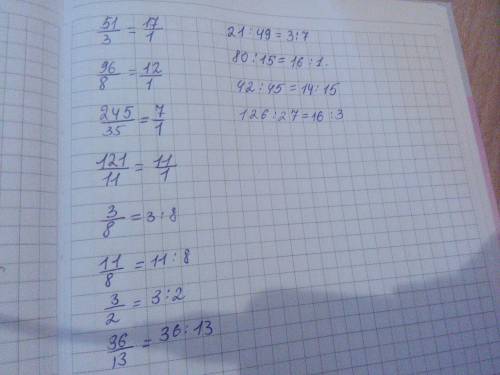 51/3 = 17/1
96/8 = 12/1
245/35 = 7/1
121/11 = 11/1
3/8 = 3:8
11/8 = 11:8
3/2 = 3:2
36/13 = 36:13
21:49=3:7
80:15=16:1.
42:45=14:15
126:27=16:3